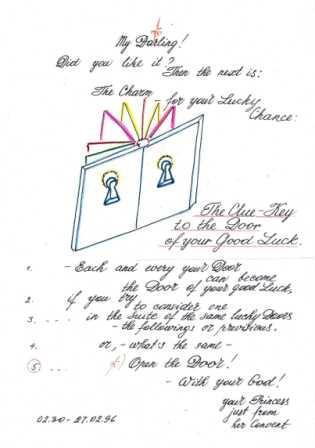 My Darling!
Did you like it?
Then the next is:
The Charm
- for your Lucky
Chance:
The Clue-Key
to the Door
of your Good Luck.
1. - Each and every your Door
can become
the Door of your good Luck,
2. if you try
to consider one
3. . . . in the Suite of the same lucky Doors
- the followings or previous.
4. or, - what's the same -
5 ... Open the Door!
- With your God!
your Princess
just from
her Convent
02.20 - 27.02.96